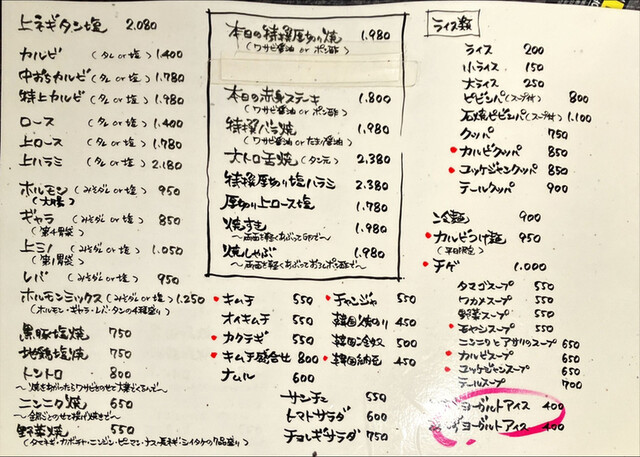 上ネギタン塩 2.080
カルビ (タレ or 塩) 1.400
中おちカルビ (タレ or 塩) 1.780
特上カルビ (タレ or 塩) 1.980
ロース (タレ or 塩) 1.400
上ロース (タレ or 塩) 1.780
上ハラミ (タレ or 塩) 2.180
ホルモン (みそダレ or 塩) 950
(大腸)
ギャラ (みそダレ or 塩) 850
(第4胃袋)
上ミノ (みそダレ or 塩) 1.050
(第1胃袋)
レバ (みそダレ or 塩) 950
ホルモンミックス (みそダレ or 塩) 1.250
(ホルモン・ギャラ・レバ・タンの4種盛り)
黒豚塩焼 750
地鶏塩焼 750
トントロ 800
〜焼きあがったらワサビをのせて大葉でくるんで〜
ニンニク焼 650
野菜焼 550
(タマネギ・カボチャ・ニンジン・ピーマン・ナス・長ネギ・シイタケの7品盛り)
本日の特撰厚切り焼 1.980
(ワサビ醤油 or ポン酢)
本日の赤身ステーキ 1.800
(ワサビ醤油 or ポン酢)
特撰バラ焼 1.980
(ワサビ醤油 or たまり醤油)
大トロ舌焼 (タン元) 2.380
特撰厚切り塩ハラミ 2.380
厚切り上ロース塩 1.780
焼すき 1.980
〜両面を軽くあぶって卵で〜
焼しゃぶ 1.980
〜両面を軽くあぶっておろしポン酢で〜
キムチ 550
オイキムチ 550
カクテギ 550
キムチ盛合せ 800
ナムル 600
チャンジャ 550
韓国焼のり 450
韓国冷奴 500
韓国納豆 450
サンチュ 550
トマトサラダ 600
チョレギサラダ 750
ライス類
ライス 200
小ライス 150
大ライス 250
ビビンバ (スープ付) 800
石焼ビビンバ (スープ付) 1.100
クッパ 750
カルビクッパ 850
ユッケジャンクッパ 850
テールクッパ 900
冷麺 900
カルビつけ麺 950
(平日限定)
チゲ 1.000
タマゴスープ 550
ワカメスープ 550
野菜スープ 550
モヤシスープ 550
ニンニクとアサリのスープ 650
カルビスープ 650
ユッケジャンスープ 650
テールスープ 700
ヨーグルトアイス 400
ヨーグルトアイス 400